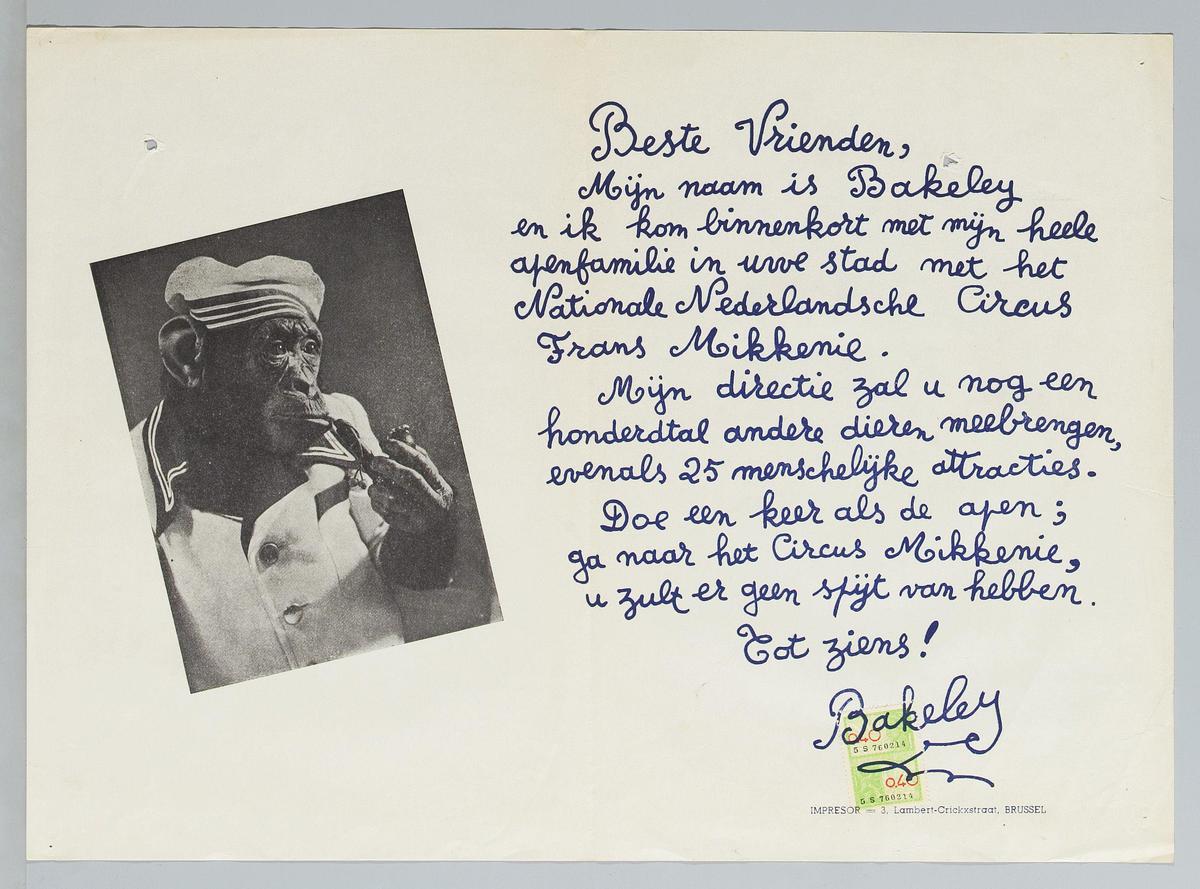 Beste Vrienden,
Mijn naam is Bakeley
en ik kom binnenkort met mijn heele
apenfamilie in uwe stad met het
Nationale Nederlandsche Circus
Frans Mikkenie.
Mijn directie zal u nog een
honderdtal andere dieren meebrengen,
evenals 25 menschelijke attracties.
Doe een keer als de apen;
ga naar het Circus Mikkenie,
u zult er geen spijt van hebben.
Tot ziens!
Bakeley
0.40
5 S 760214
0.40
5 S 760214
IMPRESOR — 3, Lambert-Crickxstraat, BRUSSEL